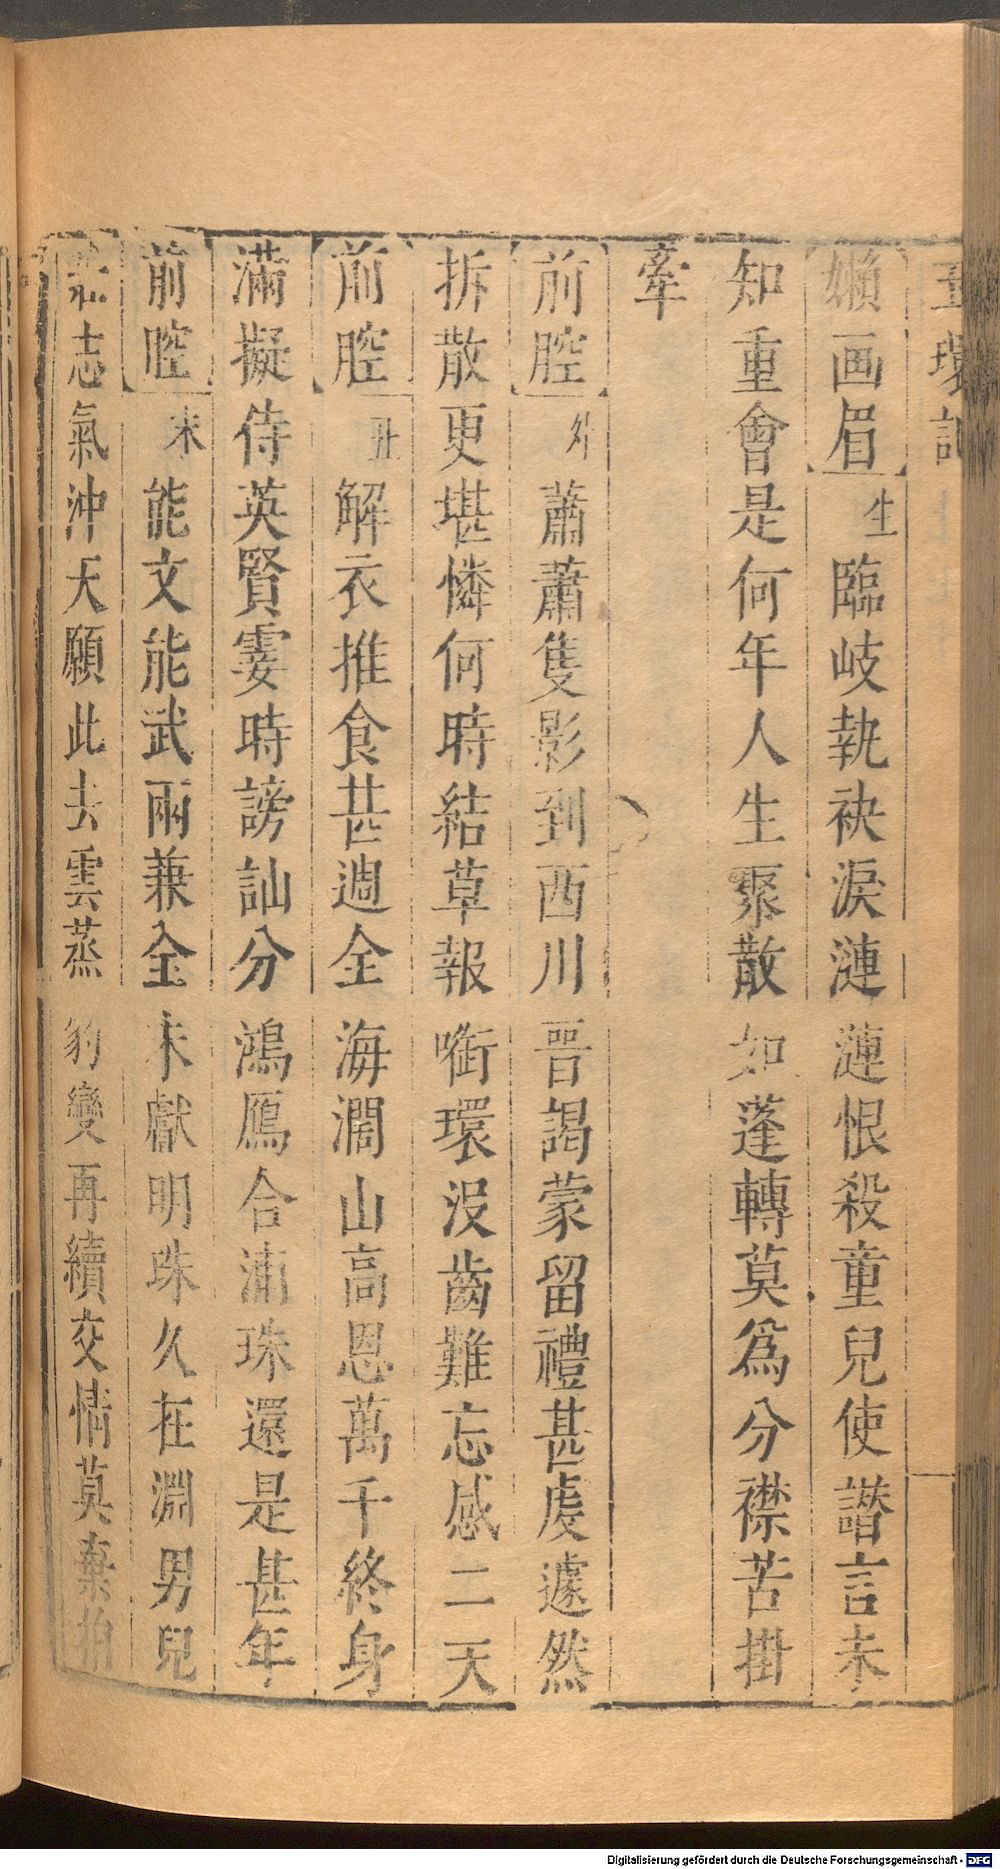 玉環記
嬾画眉 生 臨岐執袂淚漣漣恨殺童兒使譖言未
知重會是何年人生聚散如蓬轉莫爲分襟苦掛
牽
前腔 外 蕭蕭隻影到西川晋謁蒙留禮甚虔遽然
拆散更堪憐何時結草報啣環沒齒難忘感二天
前腔 丑 解衣推食甚週全海濶山高恩萬千終身
滿擬侍英賢霎時謗訕分鴻鴈合浦珠還是甚年
前腔 末 能文能武兩兼全未獻明珠久在淵男兒
壯志氣沖天願此去雲蒸豹變再續交情莫棄
Digitalisierung gefördert durch die Deutsche Forschungsgemeinschaft - DFG